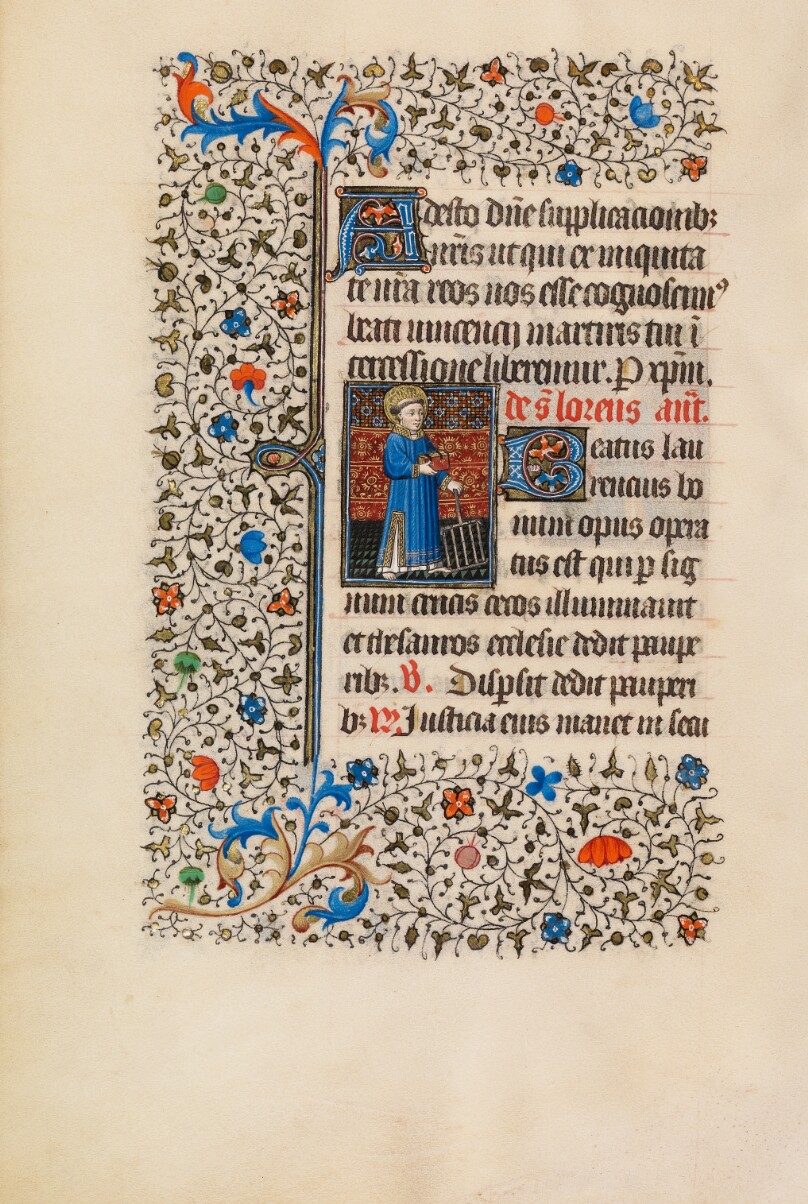 Adesto dn̄e supplicacionib;
nr̄is ut qui ex iniquita
te nr̄a reos nos esse cognoscimꝰ
beati vincencij martiris tui ī
tercessione liberemur. P xp̄m.
de s̄ lorens an̄t.
Beatus lau
rencius bo
num opus opera
tus est qui p sig
num crucis cecos illuminauit
et thesauros ecclesie dedit paupe
rib;. V. Dispsit dedit pauperi
b; R. Iusticia eius manet in secu